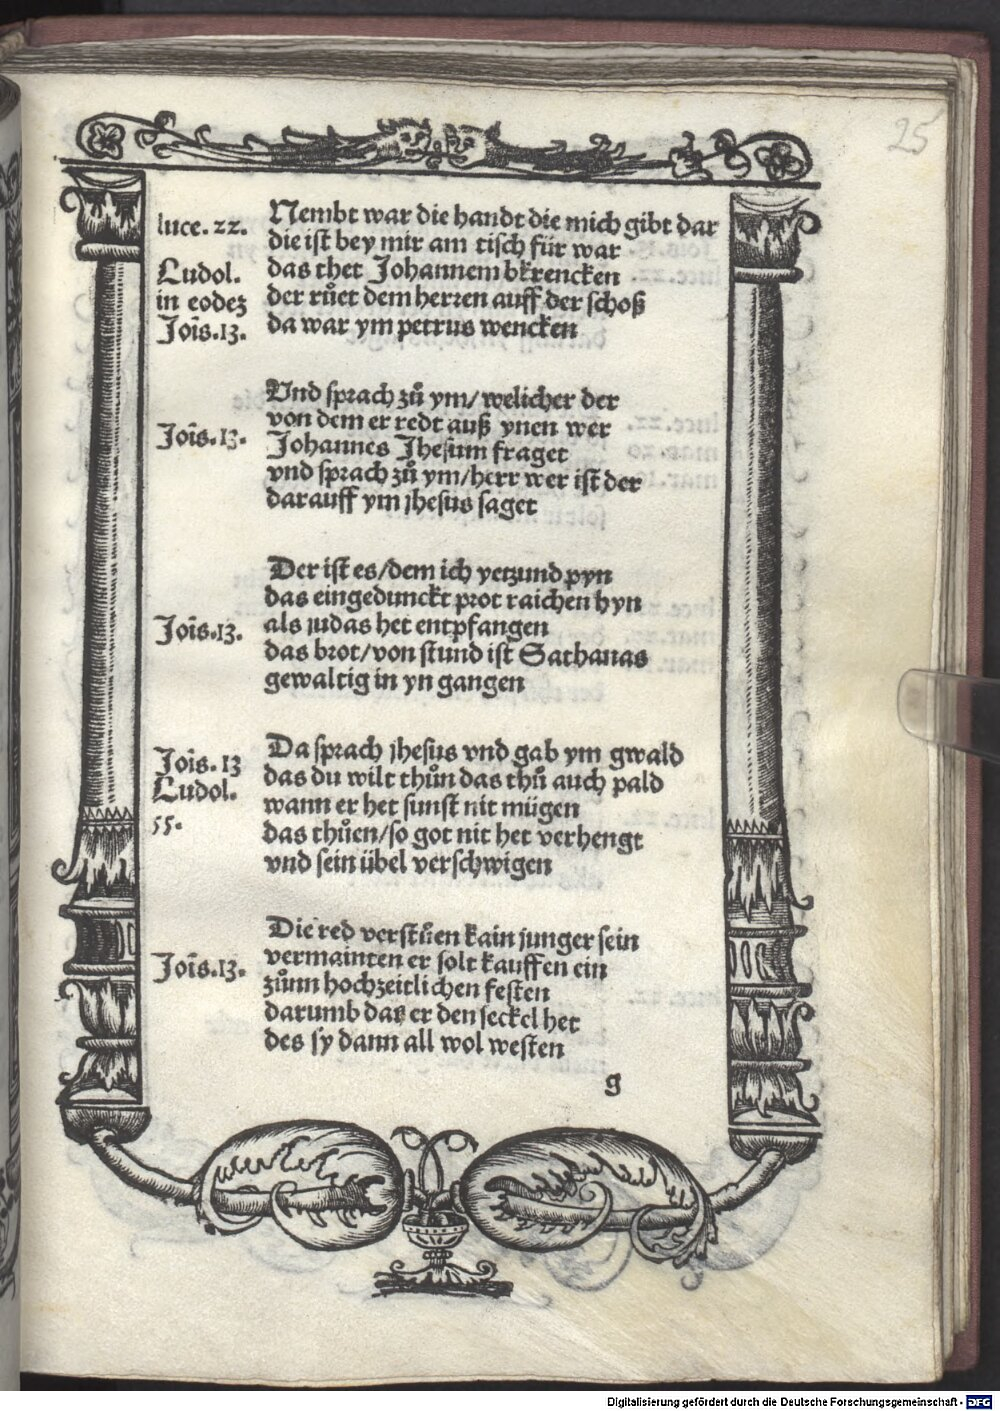 25
luce. 22.
Nembt war die handt die mich gibt dar
die ist bey mir am tisch für war
Ludol.
das thet Johannem bkrencken
in eodez
der růet dem herren auff der schoß
Joīs.13.
da war ym petrus wencken
Vnd sprach zů ym/ welicher der
von dem er redt auß ynen wer
Joīs.13.
Johannes Jhesum fraget
vnd sprach zů ym/herr wer ist der
darauff ym jhesus saget
Der ist es/dem ich yetzund pyn
das eingedunckt prot raichen hyn
Joīs.13.
als iudas het entpfangen
das brot/von stund ist Sathanas
gewaltig in yn gangen
Joīs. 13
Da sprach jhesus vnd gab ym gwald
Ludol.
das du wilt thůn das thů auch pald
55.
wann er het sunst nit mügen
das thůen/so got nit het verhengt
vnd sein übel verschwigen
Die red verstůen kain junger sein
Joīs.13.
vermainten er solt kauffen ein
zůnn hochzeitlichen festen
darumb das er den seckel het
des sy dann all wol westen
g
Digitalisierung gefördert durch die Deutsche Forschungsgemeinschaft - DFG